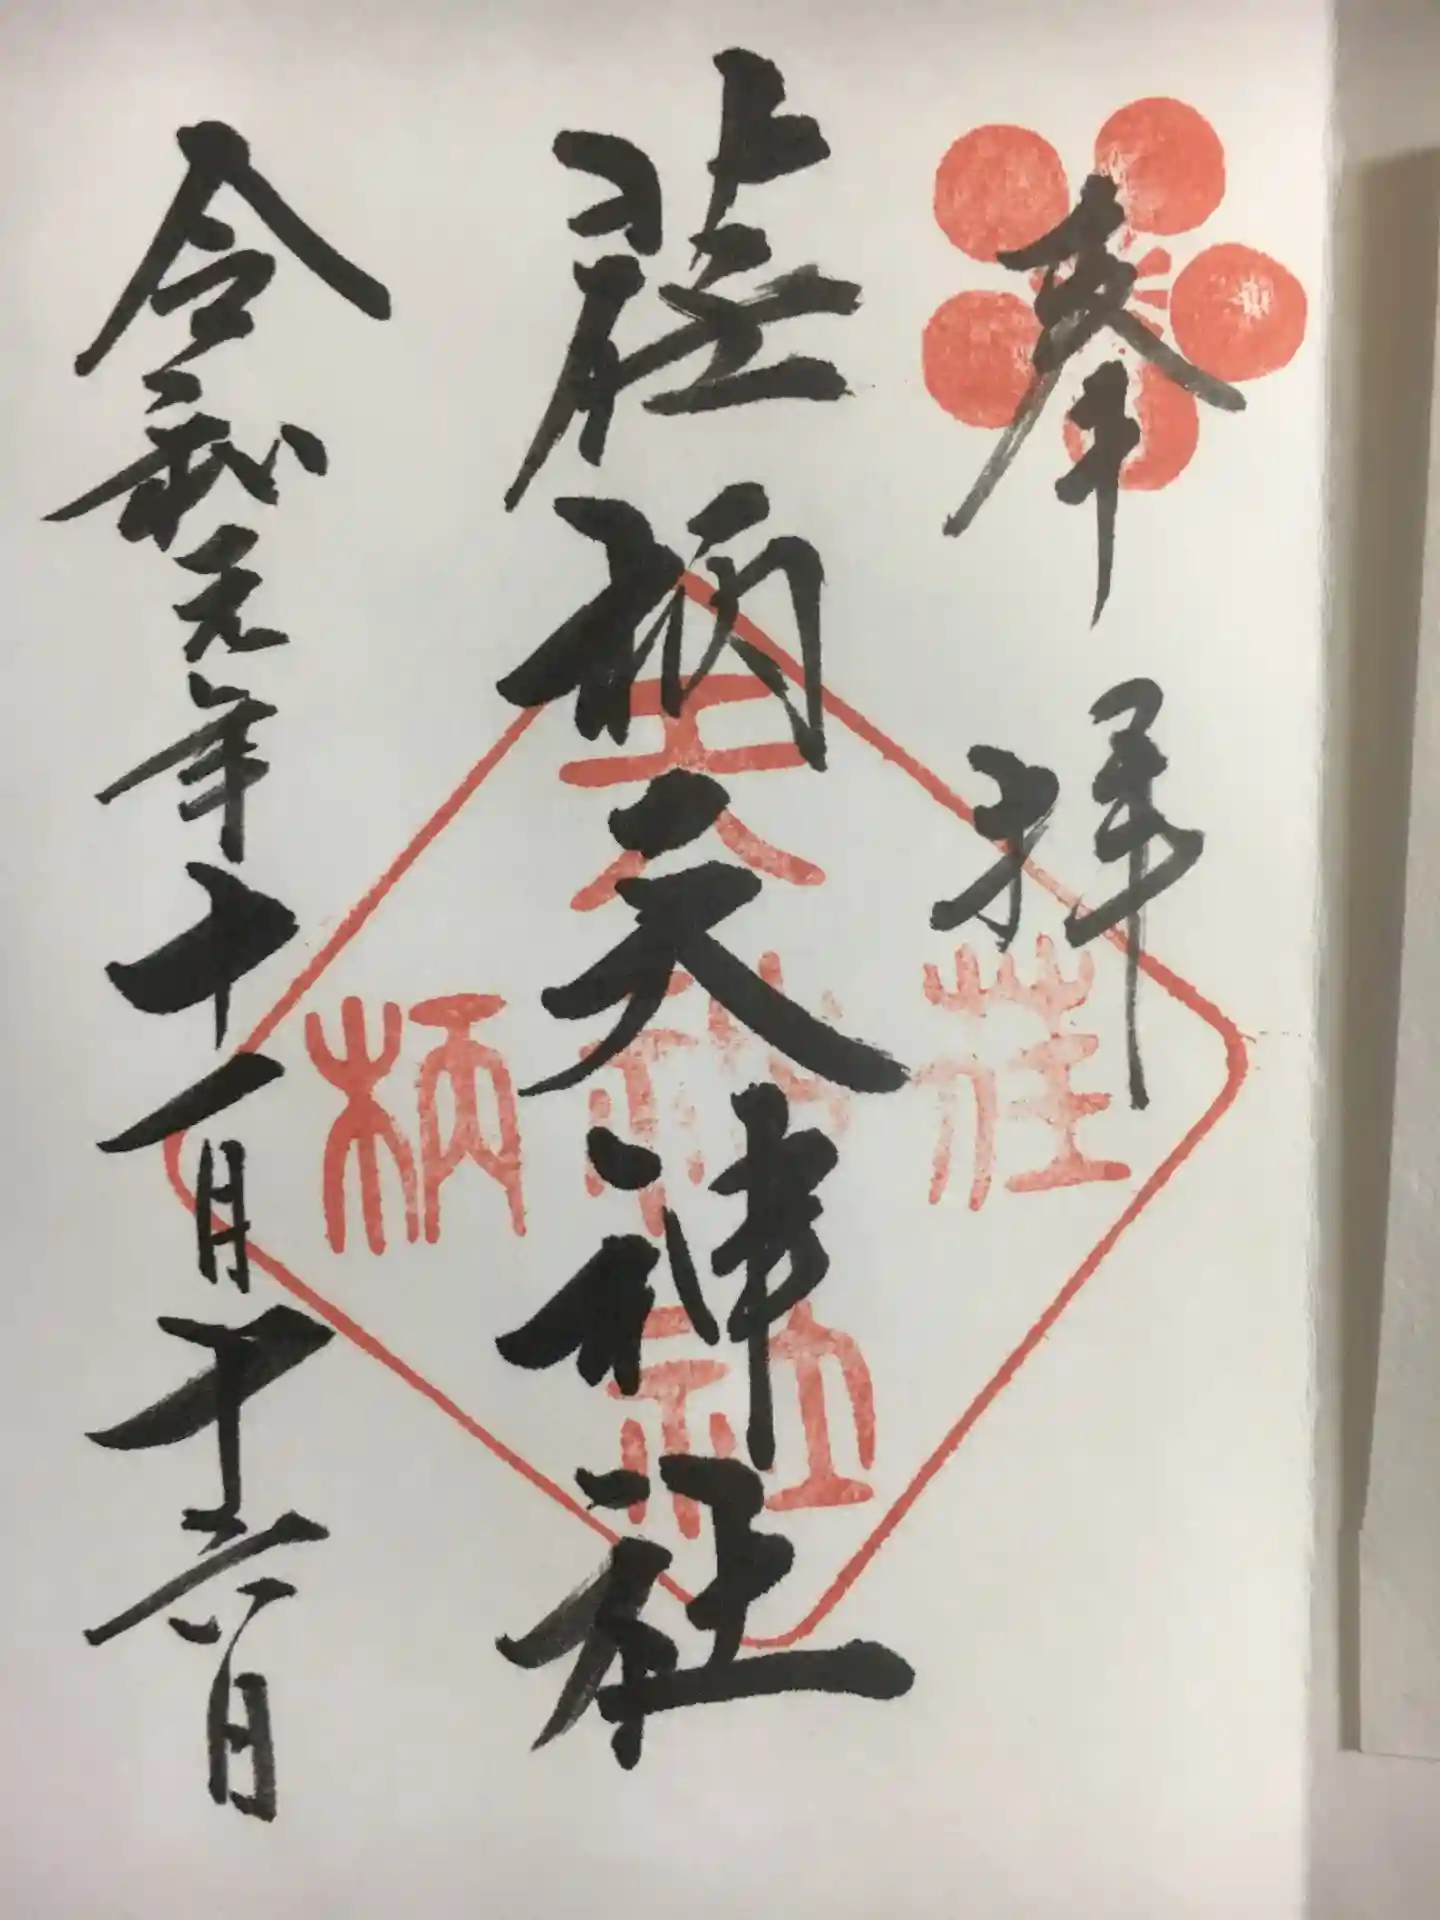 奉拝
荏柄天神社
令和元年十一月十六日
荏柄天神社